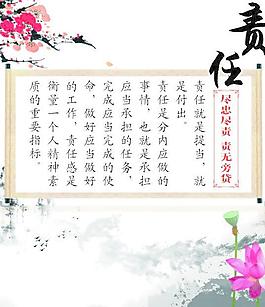 责任
尽忠尽责 责无旁贷
责任就是担当，就
是付出。
责任是分内应做的
事情，也就是承担
应当承担的任务，
完成应当完成的使
命，做好应当做好
的工作，责任感是
衡量一个人精神素
质的重要指标。